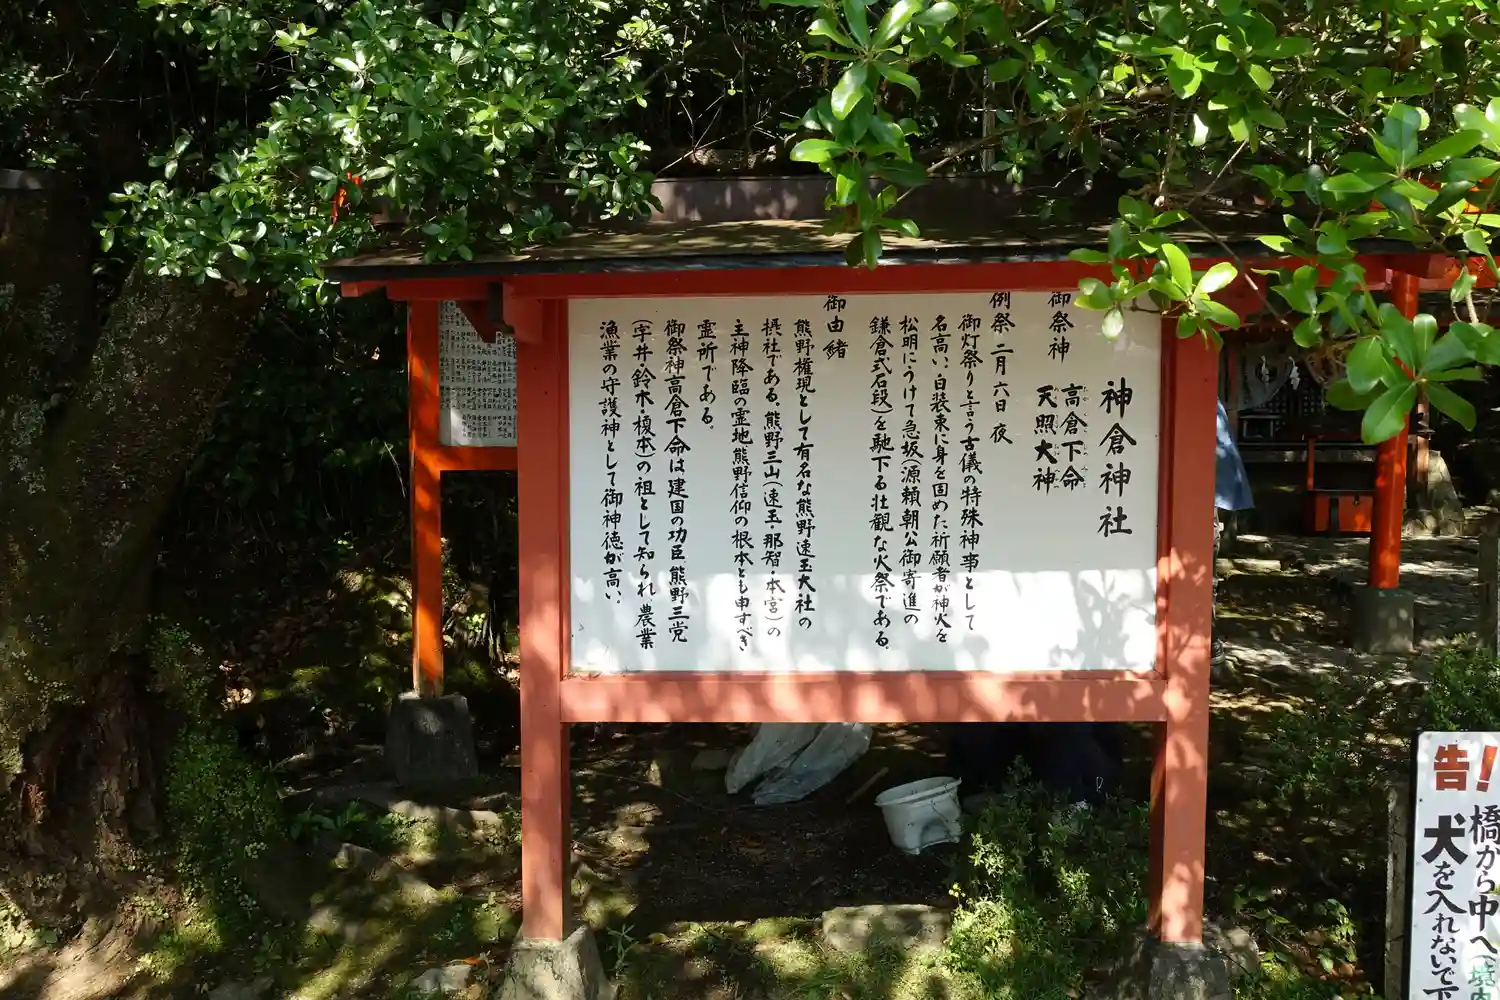 神倉神社
御祭神
高倉下命
天照大神
例祭 二月六日夜
御灯祭りと言う古儀の特殊神事として
名高い、白装束に身を固めた祈願者が神火を
松明にうけて急坂(源頼朝公御寄進の
鎌倉式石段)を馳下る壮観な火祭である。
御由緒
熊野権現として有名な熊野速玉大社の
摂社である。熊野三山(速玉・那智・本宮)の
主神降臨の霊地熊野信仰の根本とも申すべき
霊所である。
御祭神高倉下命は建国の功臣熊野三党
(宇井・鈴木・榎本)の祖として知られ農業
漁業の守護神として御神徳が高い。
告!
橋から中へ(境内
犬を入れないで下